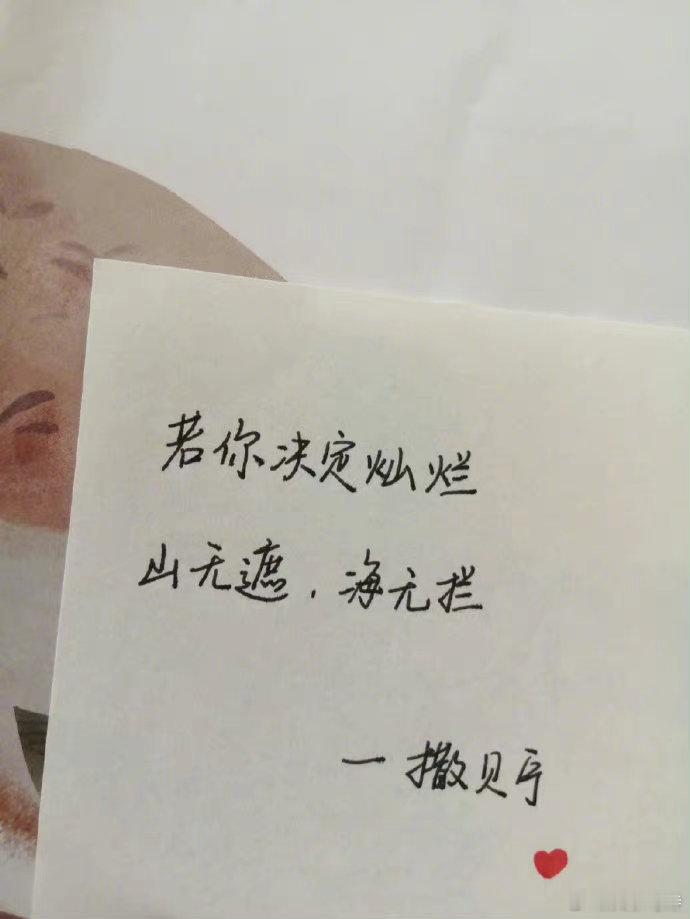 若你决定灿烂
山无遮，海无拦
一撒贝宁